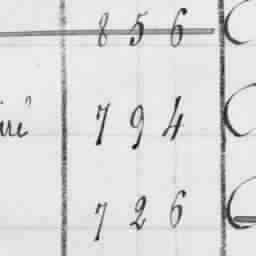 856
794
726